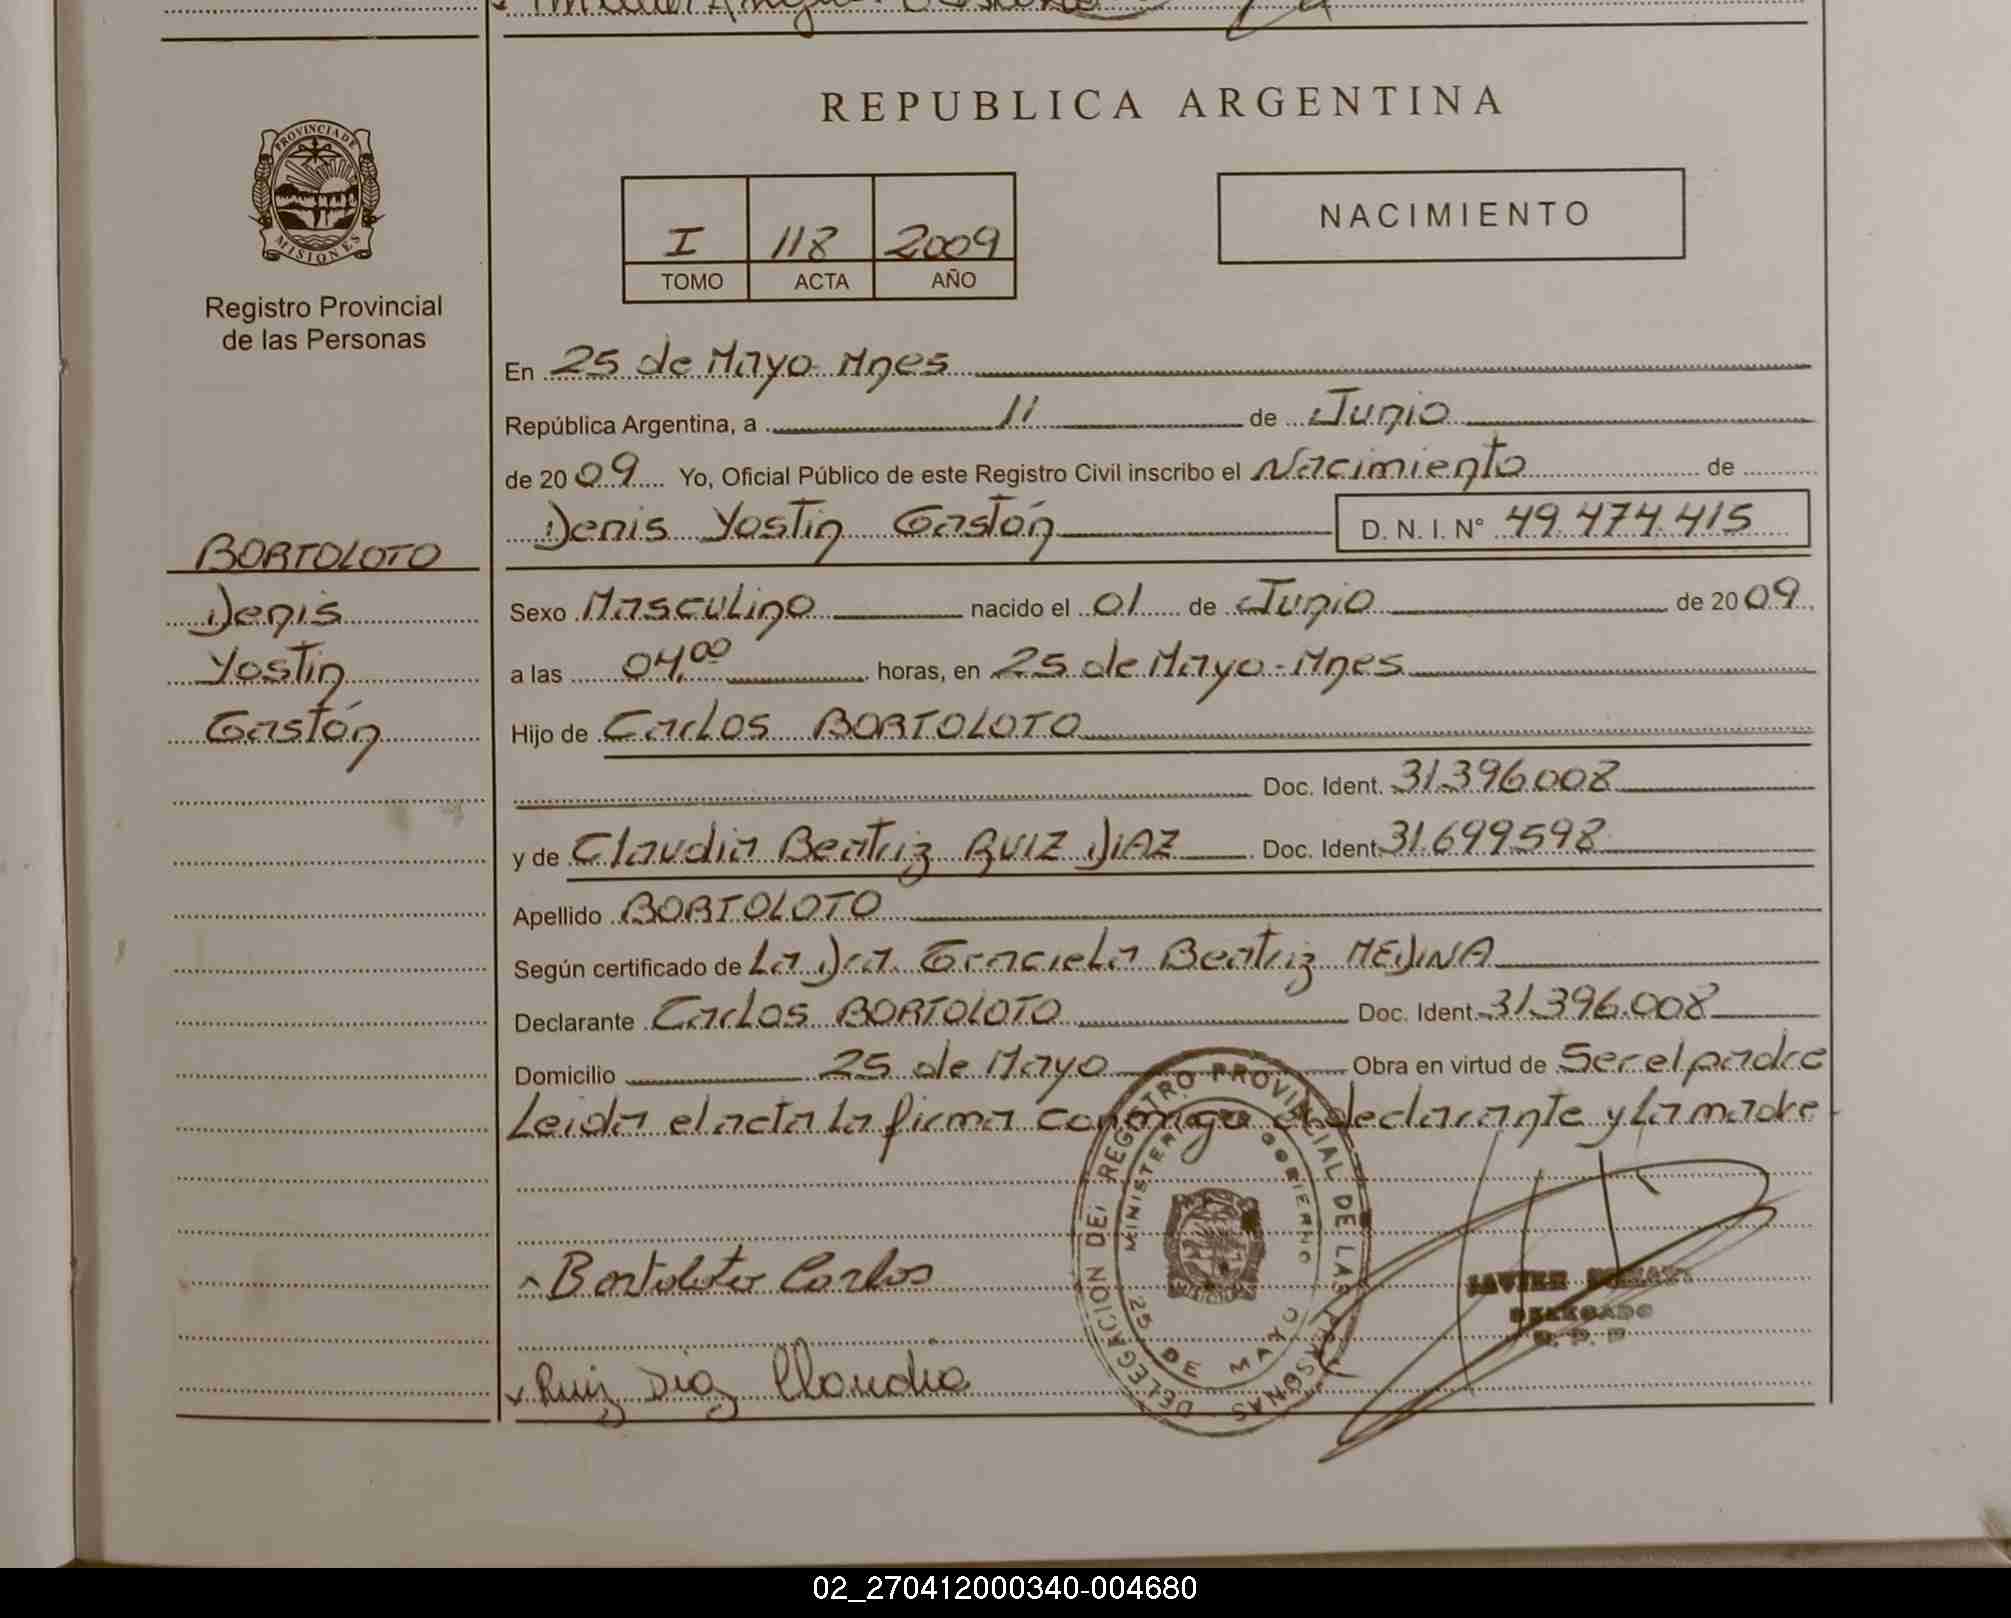 REPUBLICA ARGENTINA
PROVINCIA DE MISIONES
Registro Provincial
de las Personas
I 118 2009
TOMO ACTA AÑO
NACIMIENTO
En 25 de Mayo-Mnes
República Argentina, a 11 de Junio
de 2009 Yo, Oficial Público de este Registro Civil inscribo el Nacimiento de
Denis Yostin Gastón D. N. I. N° 49.474.415
BORTOLOTO
Denis
Yostin
Gastón
Sexo Masculino nacido el 01 de Junio de 2009
a las 04,00 horas, en 25 de Mayo-Mnes
Hijo de Carlos BORTOLOTO
Doc. Ident. 31.396.008
y de Claudia Beatriz RUIZ DIAZ Doc. Ident. 31.699.598
Apellido BORTOLOTO
Según certificado de La Dra. Graciela Beatriz MEDINA
Declarante Carlos BORTOLOTO Doc. Ident. 31.396.008
Domicilio 25 de Mayo Obra en virtud de Ser el padre
Leida el acta la firma conmigo el declarante y la madre
Bortoloto Carlos
Ruiz Diaz Claudia
DELEGACION DEL REGISTRO PROVINCIAL DE LAS PERSONAS
MINISTERIO GOBIERNO
25 DE MAYO
JAVIER
DELEGADO
R. P. P
02_270412000340-004680